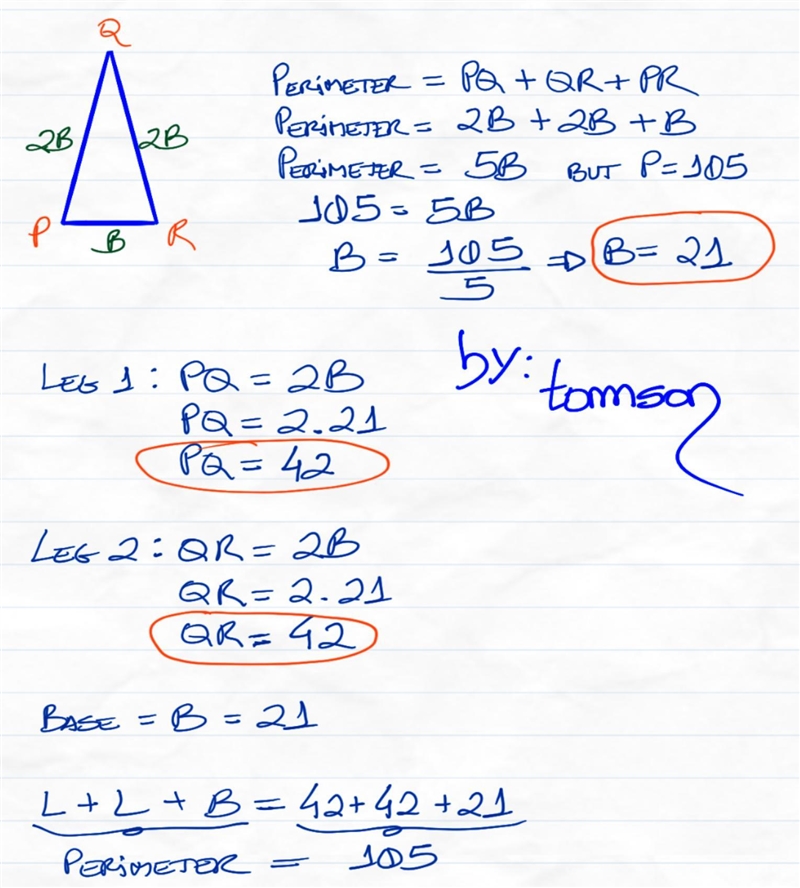 Q
2B 2B
P B R
PERIMETER = PQ + QR + PR
PERIMETER = 2B + 2B + B
PERIMETER = 5B BUT P=105
105 = 5B
B = 105/5 ⇒ B= 21
LEG 1 : PQ = 2B
PQ = 2.21
PQ = 42
by: tomson
LEG 2 : QR = 2B
QR = 2.21
QR = 42
BASE = B = 21
L + L + B = 42+42+21
PERIMETER = 105